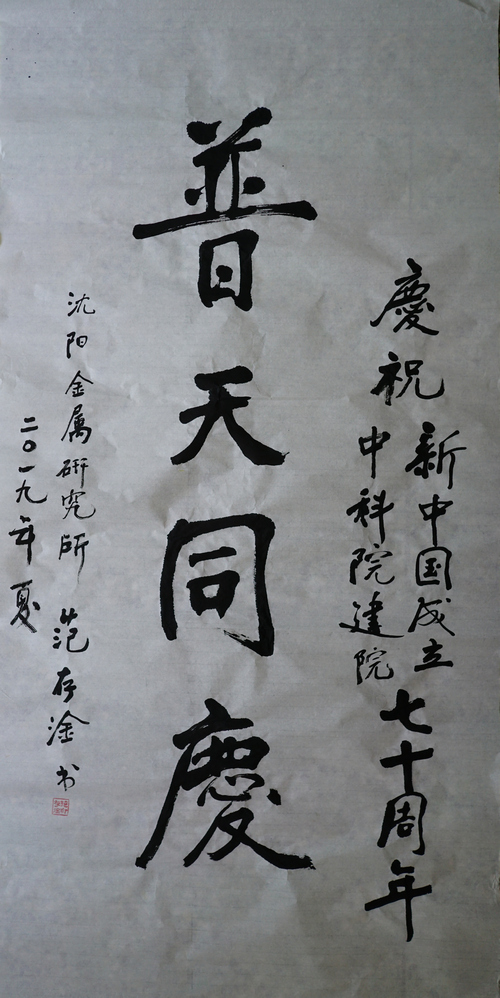 慶祝
新中国成立
中科院建院
七十周年
普天同慶
沈阳金属研究所 范存淦 书
二〇一九年夏